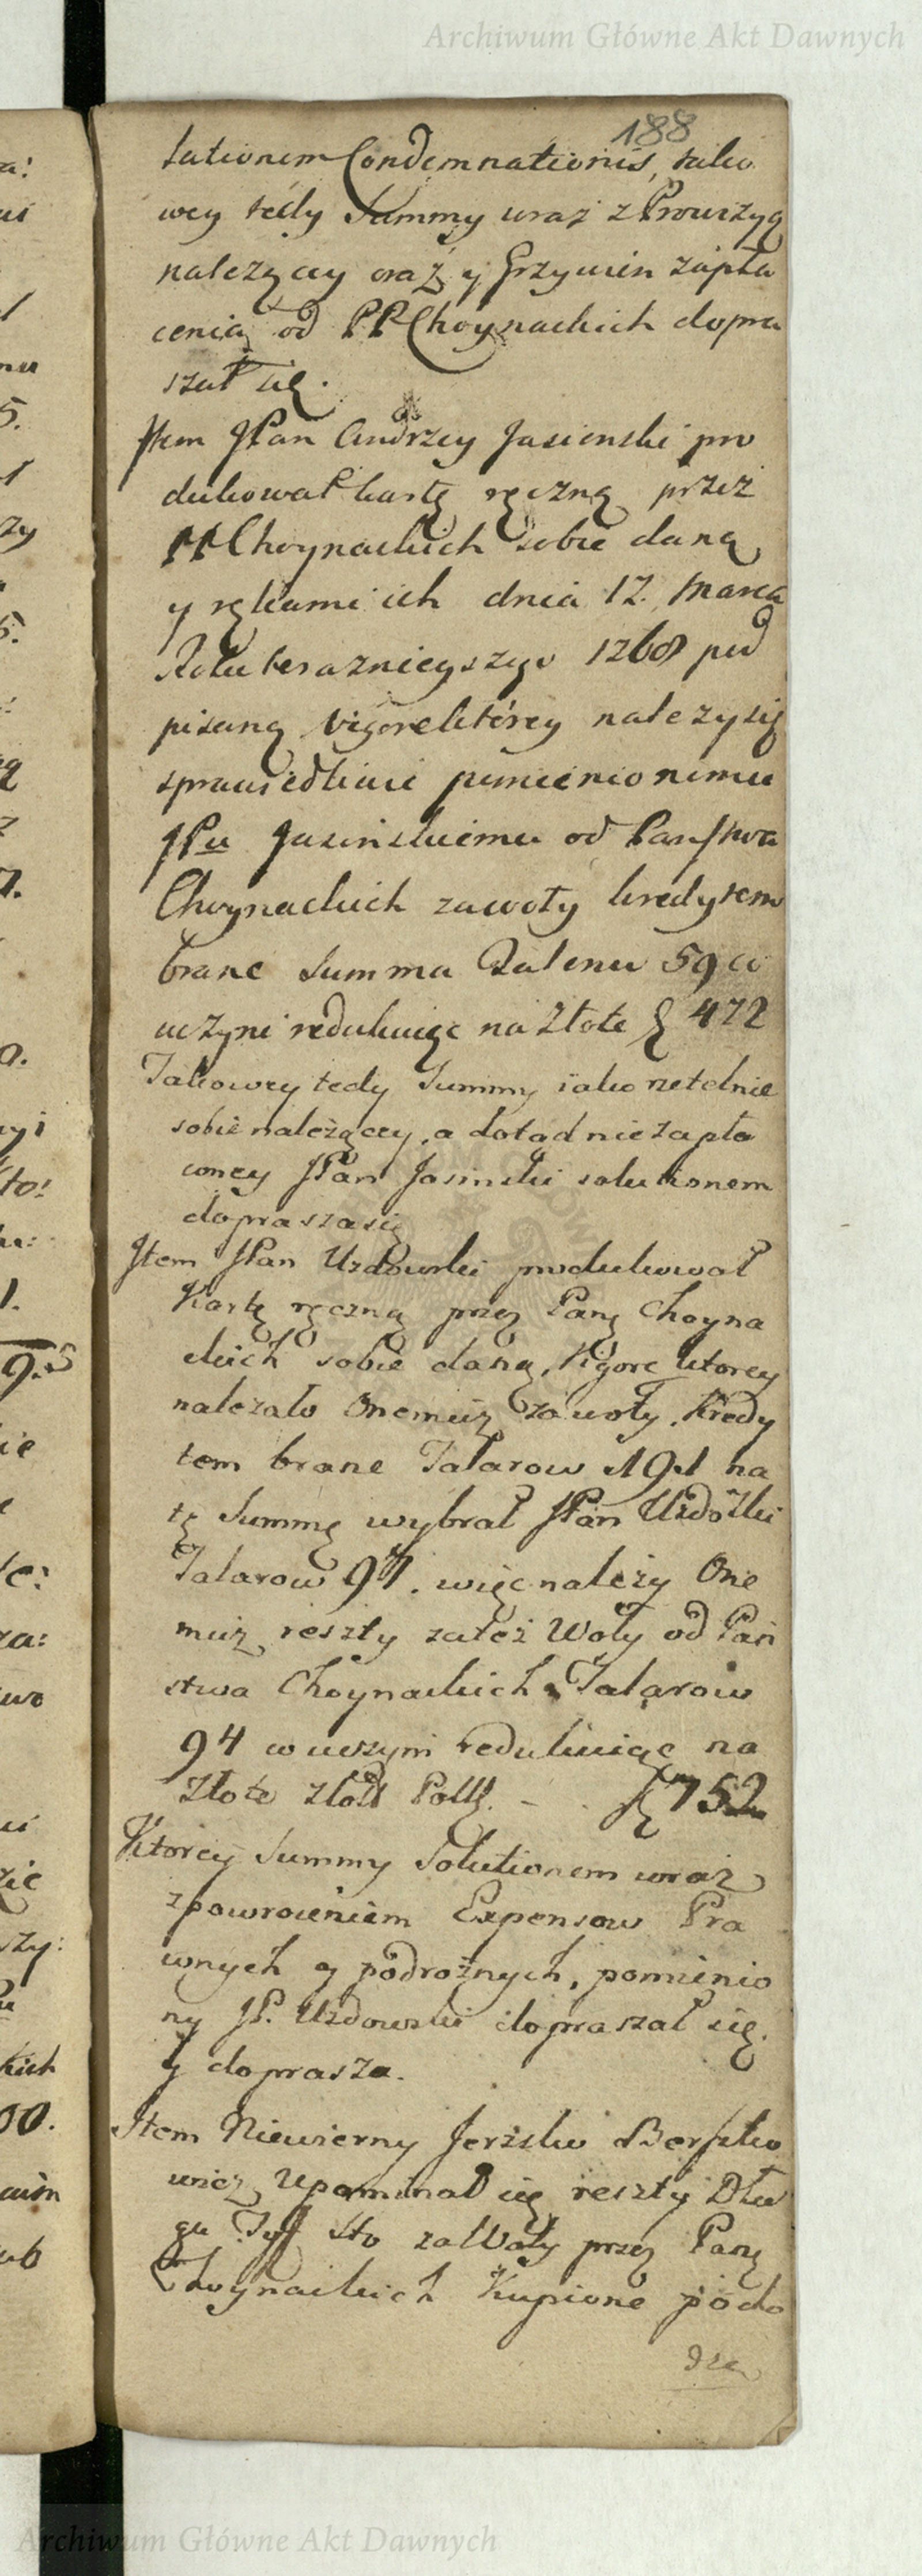 Archiwum Główne Akt Dawnych
188
lationem Condemnationis, tako
wey tedy Summy wraz z Prowizyą
należącey oraz y Grzywien zapła
cenia od PP Choynackich dopra
szał się.
Item JPan Andrzey Jasienski pro
dukował kartę ręczną przez
PP Choynackich sobie daną
y rękami ich dnia 12. Marca
Roku terazniejszego 1768 pod
pisaną vigore ktorey należy się
sprawiedliwie pomienionemu
JPu Jasinskiemu od Państwa
Choynackich za woły kredytem
brane Summa Talerow 59 co
uczyni redukuiąc na złote 472
Takowey tedy Summy iako rzetelnie
sobie należącey, a dotąd nie zapła
coney JPan Jasinski solutionem
doprasza się
Item JPan Uzdowski produkował
Kartę ręczną przez Panę Choyna
ckich sobie daną, Vigore ktorey
należało Onemuż za woły Kredy
tem brane Talarow 191 na
tę Summę wybrał JPan Uzdowski
Talarow 97. więc należy One
muż reszty za też Woły od Pań
stwa Choynackich Talarow
94 co uczyni redukuiąc na
złote złott Poll. 752
Ktorey Summy Solutionem wraz
z powroceniem Expensow Pra
wnych y podrożnych, pomienio
ny JP. Uzdowski dopraszał się.
y doprasza.
Item Niewierny Jerszko Berszko
wicz Upominał się reszty Dłu
gu Tyff sto za Woły przez Panę
Choynackich Kupione podo
dze
Archiwum Główne Akt Dawnych